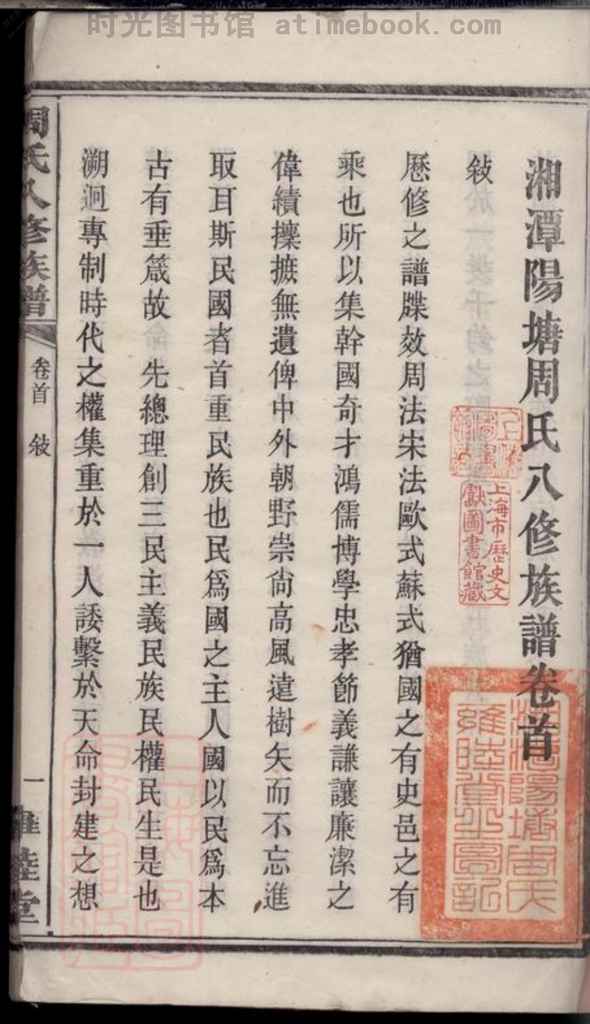 时光图书馆 atimebook.com
湘潭陽塘周氏八修族譜卷首
敍
歷修之譜牒效周法宋法歐式蘇式猶國之有史邑之有
乘也所以集幹國奇才鴻儒博學忠孝節義謙讓廉潔之
偉績攗摭無遺俾中外朝野崇尙高風遠樹矢而不忘進
取耳斯民國者首重民族也民爲國之主人國以民爲本
古有垂箴故 先總理創三民主義民族民權民生是也
溯迴專制時代之權集重於一人諉繫於天命封建之想
周氏八修族譜
卷首 敍
一
雍睦堂
上海市歷史文
獻圖書館藏
湘潭陽塘周氏
雍睦堂之圖記